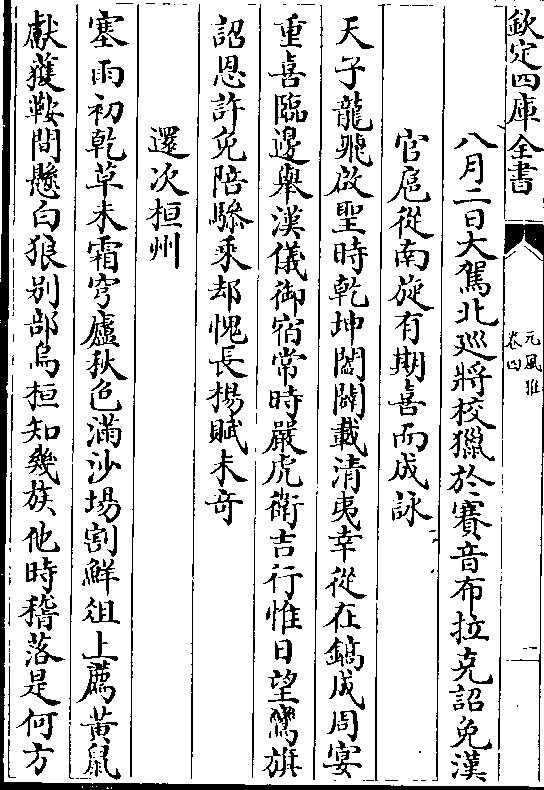 欽定四庫全書
元風雅
卷四
二
八月二日大駕北巡將校獵於賽音布拉克詔免漢
官扈從南旋有期喜而成詠
天子龍飛啟聖時乾坤闔闢載清夷幸從在鎬成周宴
重喜臨邊舉漢儀御宿常時嚴虎衛吉行惟日望鸞旗
詔恩許免陪驂乘却愧長楊賦未奇
還次桓州
塞雨初乾草未霜穹廬秋色滿沙場割鮮俎上薦黃鼠
獻獲鞍間懸白狼别部烏桓知幾族他時稽落是何方